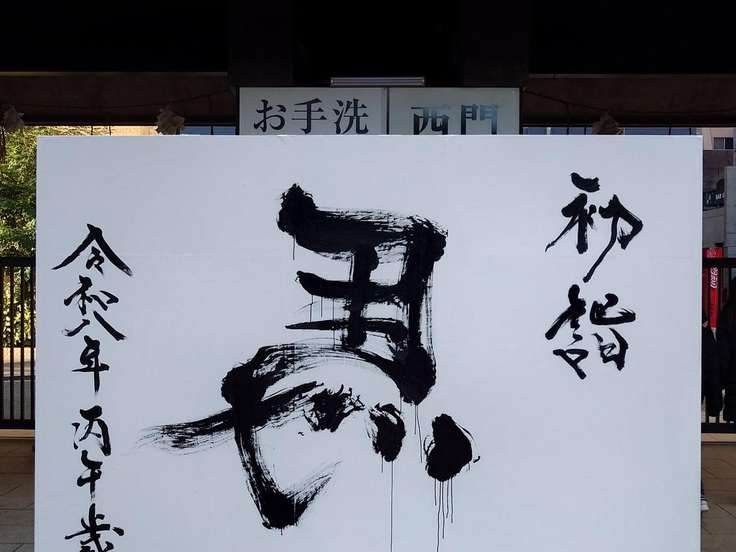 お手洗
西門
初詣
令和八年 丙午歳
Coca-Cola